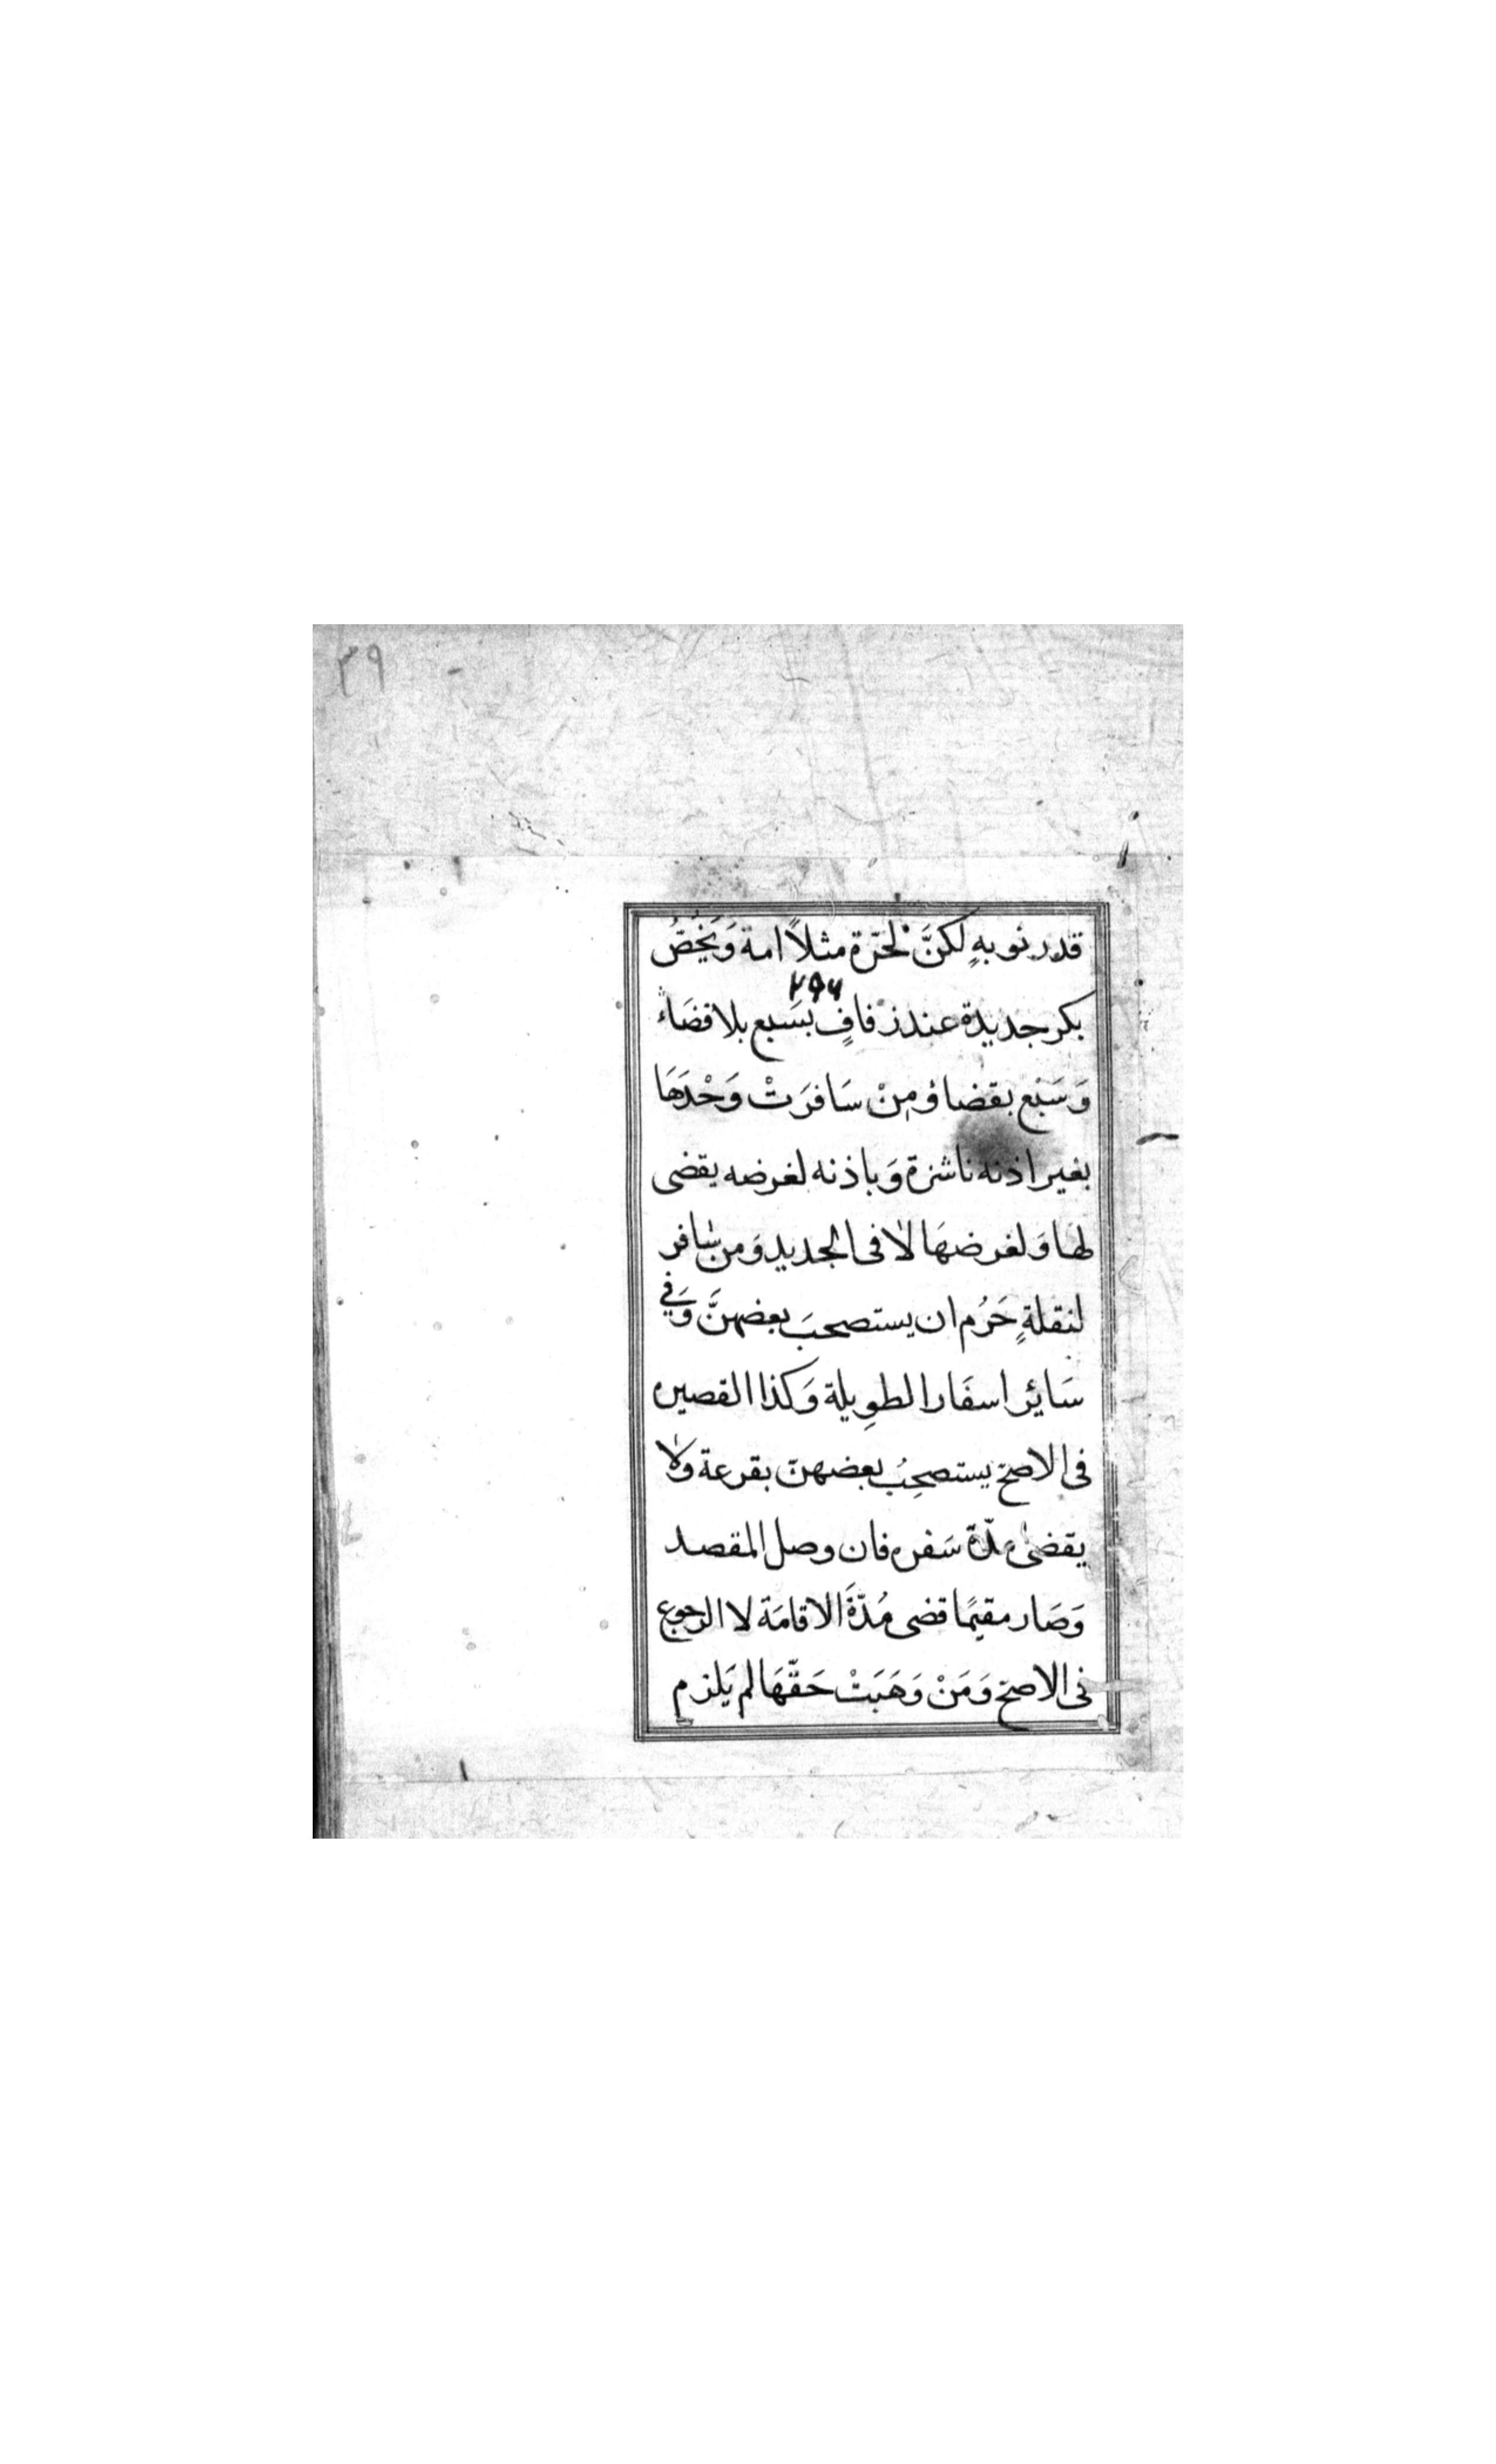 ٣٩
قدر نوبهٍ لكنَّ لحَرّة مثلاً امة وَيَخُصُّ
٢٩٤
بكر جديدة عند زفافٍ بسَبع بلا قضَاء
وَسَبْع بقضا ومنْ سَافرَتْ وَحْدَهَا
بغير اذنه ناشزة وَباذنه لغرضه يقضى
لها وَلغرضهَا لا فى الجديد ومن سَافر
لنقلةٍ حَرُم ان يستصحبَ بعضهنَّ وَفي
سَايِر اسفَار الطوِيلة وَكذا القصيره
فى الاصح يستصحِبُ بعضهنّ بقرعة ولا
يقضى مدّة سَفره فان وصل المقصد
وَصَار مقيمًا قضى مُدّةَ الاقامَة لا الرجوع
فى الاصح وَمَنْ وَهَبَتْ حَقّهَا لم يَلزم